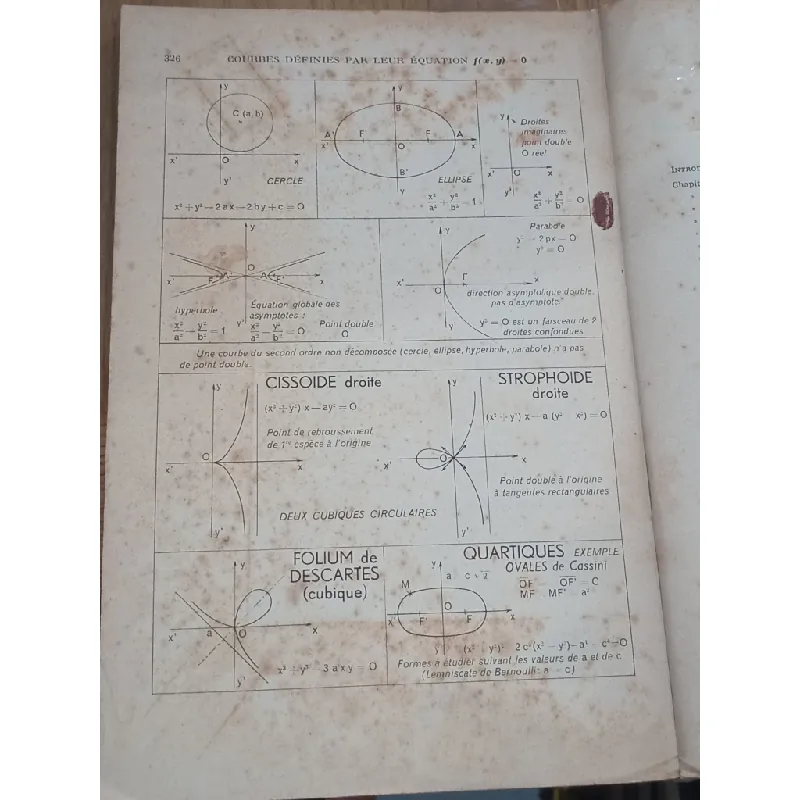 326 COURBES DÉFINIES PAR LEUR ÉQUATION f(x, y) = 0
y
C (a, b)
x' O x
y' CERCLE
x² + y² − 2ax − 2by + c = 0
y
B
A' F' F A
x' O x
B'
y
ELLIPSE
x²/a² + y²/b² = 1
y
Droites
imaginaires
point double
O réel
x' O x
y'
x²/a² + y²/b² = 0
y
x' F' A' O A F x
y'
hyperbole
x²/a² − y²/b² = 1
Équation globale des
asymptotes :
x²/a² − y²/b² = 0
Point double
O
y
Parabole
y² − 2px = 0
y² = 0
x' O F x
direction asymptotique double,
pas d'asymptote
y'
y² = 0 est un faisceau de 2
droites confondues
Une courbe du second ordre non décomposée (cercle, ellipse, hyperbole, parabole) n'a pas
de point double.
y
CISSOIDE droite
(x² + y²) x − ay² = 0
Point de rebroussement
de 1re espèce à l'origine
x' O x
y'
y
STROPHOIDE
droite
(x² + y²) x − a (y² x²) = 0
x' O x
Point double à l'origine
à tangentes rectangulaires
y'
DEUX CUBIQUES CIRCULAIRES
y
FOLIUM de
DESCARTES
(cubique)
x' a O x
y'
x³ + y³ − 3 axy = 0
QUARTIQUES EXEMPLE
OVALES de Cassini
y a c √2
OF OF' = C
MF MF' = a²
M
O
x' F' F x
y'
(x² + y²)² 2c²(x² − y²) − a⁴ c⁴ = 0
Formes à étudier suivant les valeurs de a et de c
(Lemniscate de Bernouilli a = c)
INTROD
Chapit